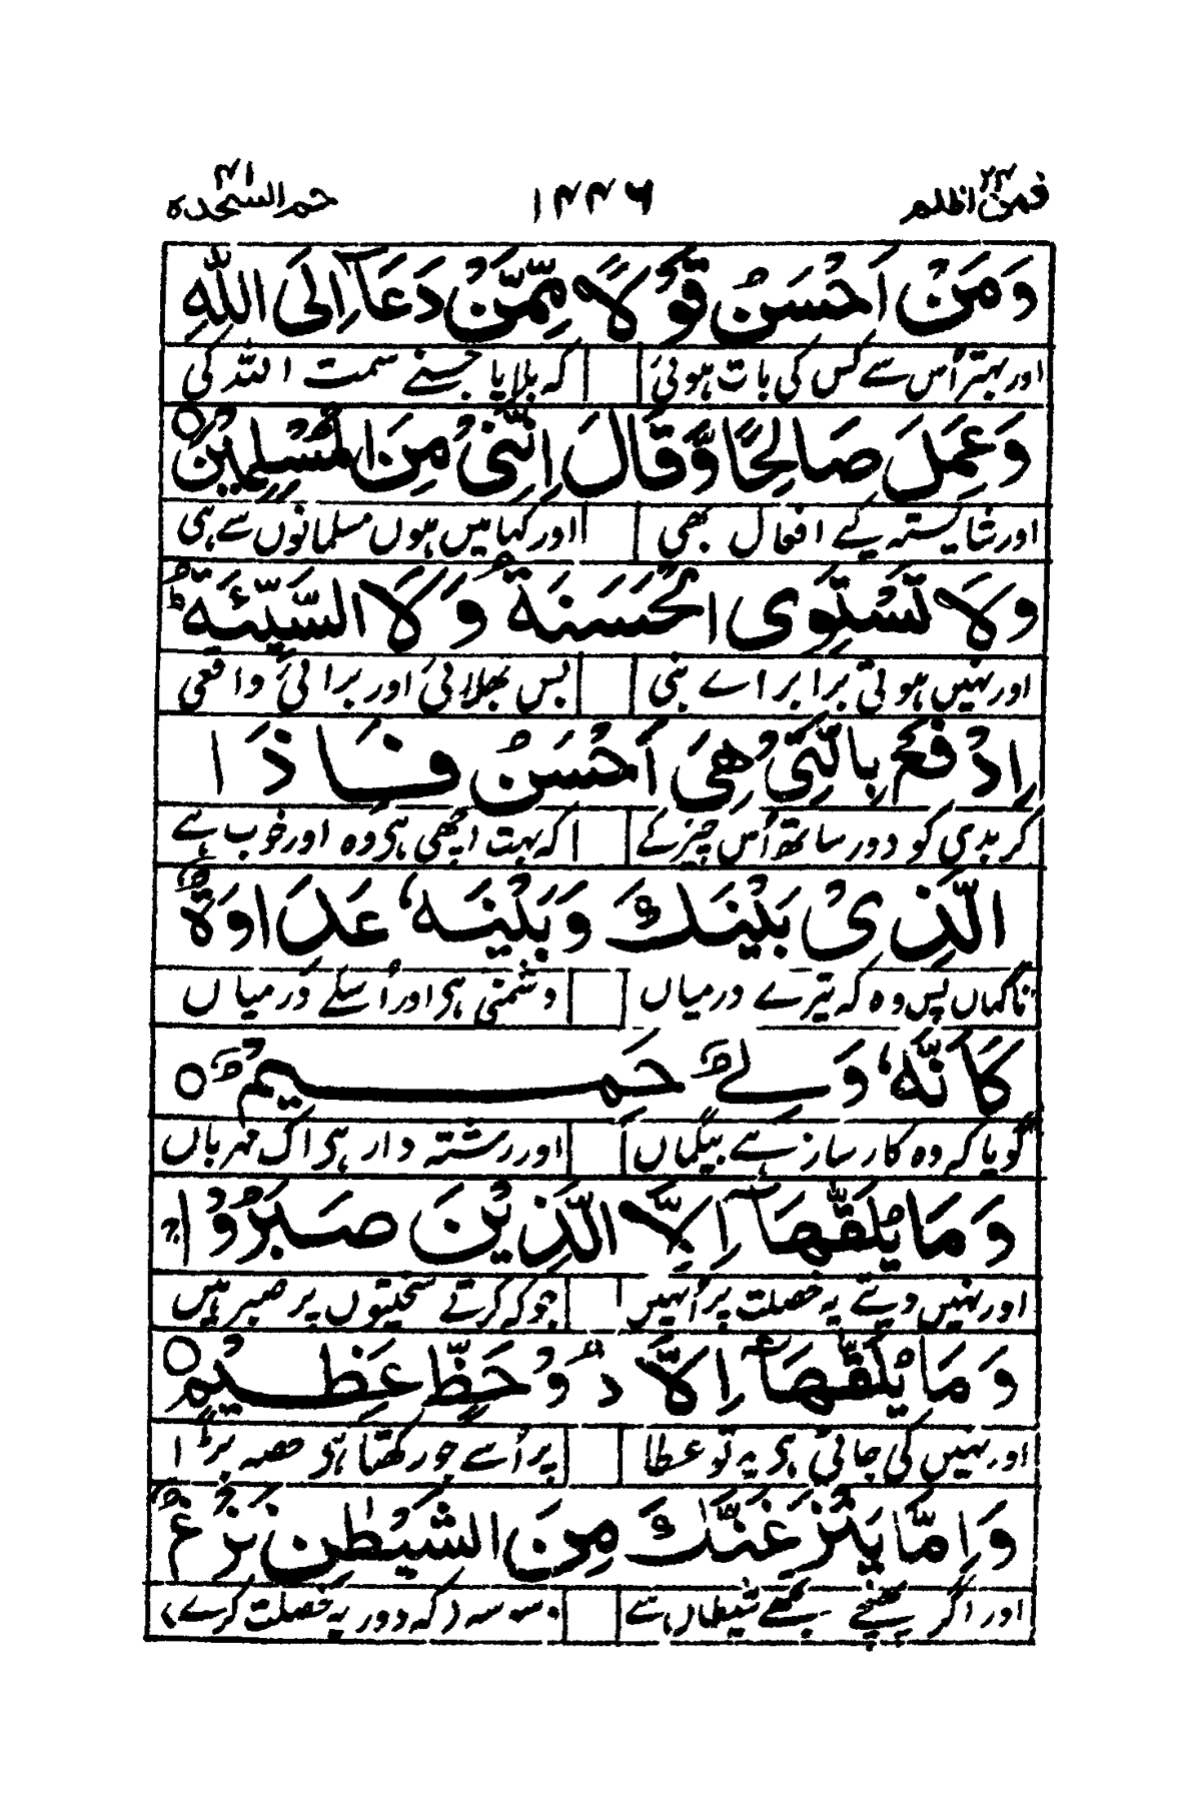 فمن اظلم ۲۴ ۱۴۴۶ حم السجدہ ۴۱
وَمَنْ اَحْسَنُ قَوْلًا مِّمَّنْ دَعَآ اِلَى اللّٰهِ
اور بہتر اُس سے کس کی بات ہوئی کہ بلایا جسنے سمت اللہ کی
وَعَمِلَ صَالِحًا وَّقَالَ اِنَّنِیْ مِنَ الْمُسْلِمِیْنَ ○
اور شایستہ کے افعال بھی اور کہا میں ہوں مسلمانوں سے ہی
وَلَا تَسْتَوِی الْحَسَنَةُ وَلَا السَّیِّئَةُ ؕ
اور نہیں ہوتی برابر اے نبی بس بھلائی اور برائی واقعی
اِدْفَعْ بِالَّتِیْ هِیَ اَحْسَنُ فَاِذَا
کر بدی کو دور ساتھ اُس چیز کے کہ بہت اچھی ہی وہ اور خوب ہے
الَّذِیْ بَیْنَكَ وَبَیْنَهٗ عَدَاوَةٌ
ناگہاں پس وہ کہ تیرے درمیاں دشمنی ہی اور اُسکے درمیاں
كَاَنَّهٗ وَلِیٌّ حَمِیْمٌ ○
گویا کہ وہ کارساز ہے بیگماں اور رشتہ دار ہی اک مہرباں
وَمَا یُلَقّٰىهَآ اِلَّا الَّذِیْنَ صَبَرُوْا ۚ
اور نہیں دیتے یہ خصلت پر اُنہیں جو کہ کرتے سختیوں پر صبر ہیں
وَمَا یُلَقّٰىهَآ اِلَّا ذُوْ حَظٍّ عَظِیْمٍ ○
اور نہیں کی جاتی ہی یہ تو عطا پر اُسے جو رکھتا ہی حصہ بڑا
وَاِمَّا یَنْزَغَنَّكَ مِنَ الشَّیْطٰنِ نَزْغٌ
اور اگر پہنچے تجھے شیطاں سے وسوسہ (کہ دور یہ خصلت کرے)